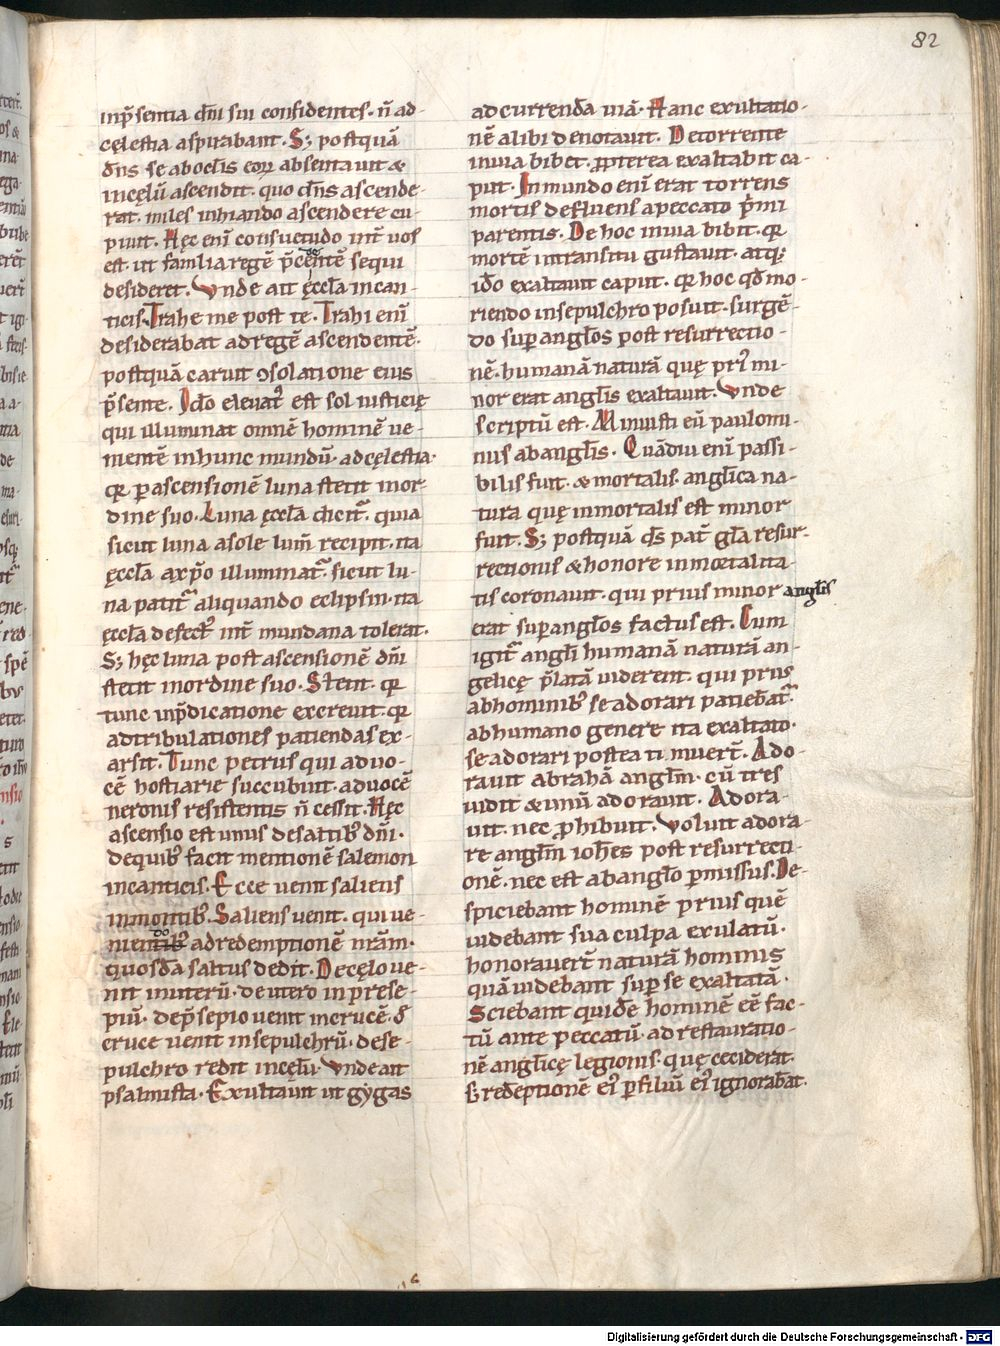 82
inp̄sentia dn̄i sui confidentes· n̄ ad-
cęlestia aspirabant· S; postquā
dn̄s se aboclis eoꝝ absentauit &
incęlū ascendit· quo dn̄s ascende-
rat· miles inhiando ascendere cu-
piuit· Hęc enī consuetudo int̄ uos
est· ut familia regē p̄cedentē sequi
desideret· Vnde ait ęccl̄a incan-
ticis· Trahe me post te· Trahi enī
desiderabat adregē ascendentē·
postquā caruit ꝯsolatione eius
p̄sente· Ido eleuat᷒ est sol iusticię
qui illuminat omnē hominē ue-
nientē inhunc mundū· adcęlestia·
qꝛ p ascensionē luna stetit inor-
dine suo· Luna ęccl̄a dicit᷑· quia
sicut luna asole lum̄ recipit· ita
ęccl̄a axp̄o illuminat᷑· sicut lu-
na patit᷑ aliquando eclipsin· ita
ęccl̄a defect᷒ int̄ mundana tolerat·
S; hęc luna post ascensionē dn̄i
stetit inordine suo· Stetit· qꝛ
tunc inp̄dicatione excreuit· qꝛ
adtribulationes patiendas ex-
arsit· Tunc petrus qui aduo-
cē hostiarie succubuit· aduocē
neronis resistentis n̄ cessit· Hęc
ascensio est unus desaltib᷒ dn̄i·
dequib᷒ facit mentionē salemon
incanticis· Ecce uenit saliens
inmontib᷒· Saliens uenit· qui ue-
niendo adredemptionē nr̄am·
quosdā saltus dedit· Decęlo ue-
nit inuterū· deutero inprese-
piū· dep̄sepio uenit incrucē· d̄
cruce uenit insepulchrū· dese-
pulchro rediit incęlū· Vnde ait
psalmista· Exultauit ut gygas
adcurrendā uiā· Hanc exultatio-
nē alibi denotauit· Detorrente
inuia bibet· ꝓpterea exaltabit ca-
put· Inmundo enī erat torrens
mortis defluens apeccato p̄mi
parentis· De hoc inuia bibit· qꝛ
mortē intransitu gustauit· atq;
ido exaltauit caput· qꝛ hoc qd̄ mo-
riendo insepulchro posuit· surgē-
do sup anglos post resurrectio-
nē· humanā naturā quę pri᷒ mi-
nor erat anglis exaltauit· Vnde
scriptū est· Minuisti eū paulomi-
nus abanglis· Quādiu enī passi-
bilis fuit· & mortalis· anglica na-
tura quę inmortalis est minor
fuit· S; postquā ds̄ pat̄ gl̄a resur-
rectionis & honore inmortalita-
tis coronauit· qui prius minor anglis
erat sup anglos factus est· Cum
igit᷑ angli humanā naturā an-
gelicę p̄latā uiderent· qui prius
abhominib᷒ se adorari patiebāt᷑·
abhumano genere ita exaltato·
se adorari postea timuer̄t· Ado-
rauit abrahā anglm̄· cū tres
uidit & unū adorauit· Adora-
uit· nec ꝓhibuit· Voluit adora-
re anglm̄ ioh̄es post resurrecti-
onē· nec est abanglo pmissus· De-
spiciebant hominē prius quē
uidebant sua culpa exulatū·
honorauer̄t naturā hominis
quā uidebant sup se exaltatā·
Sciebant quidē hominē eē̄ fac-
tū ante peccatū· adrestauratio-
nē anglicę legionis· quę ceciderat·
s; redēptionē ei᷒ p filiū ei᷒ ignorabāt·
Digitalisierung gefördert durch die Deutsche Forschungsgemeinschaft - DFG